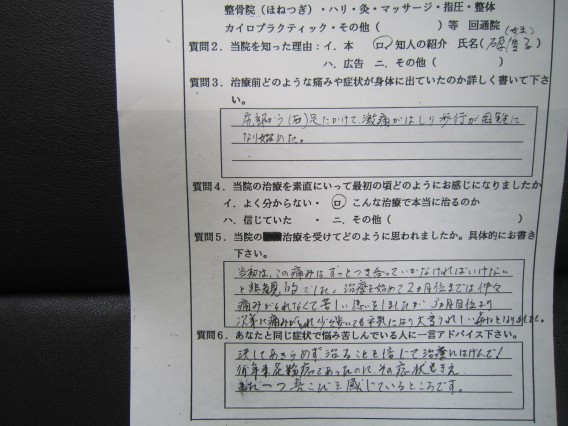 整骨院(ほねつぎ)・ハリ・灸・マッサージ・指圧・整体
カイロプラクティック・その他( )等 回通院
質問2．当院を知った理由：イ．本 ロ 知人の紹介 氏名(
ハ．広告 ニ．その他( )
質問3．治療前どのような痛みや症状が身体に出ていたのか詳しく書いて下さ
い。
臀部から(右)足にかけて、激痛がはしり歩行が困難に
なり始めた。
質問4．当院の治療を素直にいって最初の頃どのようにお感じになりましたか
イ．よく分からない・ ロ こんな治療で本当に治るのか
ハ．信じていた ・ ニ．その他( )
質問5．当院の 治療を受けてどのように思われましたか。具体的にお書き
下さい。
当初は、この痛みはずっとつき合っていかなければいけない
と悲観的でした。治療を始めて2ヵ月位までは伸々
痛みがとれなくて苦しい思いをしましたが 3ヵ月位より
次第に痛みがとれ 少々歩いても平気になり大変うれしい
質問6．あなたと同じ症状で悩み苦しんでいる人に一言アドバイス下さい。
決してあきらめず治ることを信じて治療にはげんで!
何年来花粉症であったのに、その症状も消え
一つ喜びを感じているところです。